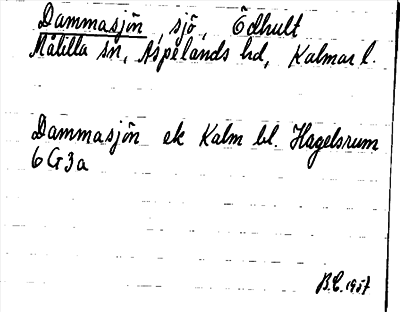 Dammasjön, sjö, Ödhult
Målilla sn, Aspelands hd, Kalmar l.
Dammasjön ek Kalm bl. Hagelsrum
6G3a
B.E. 1957